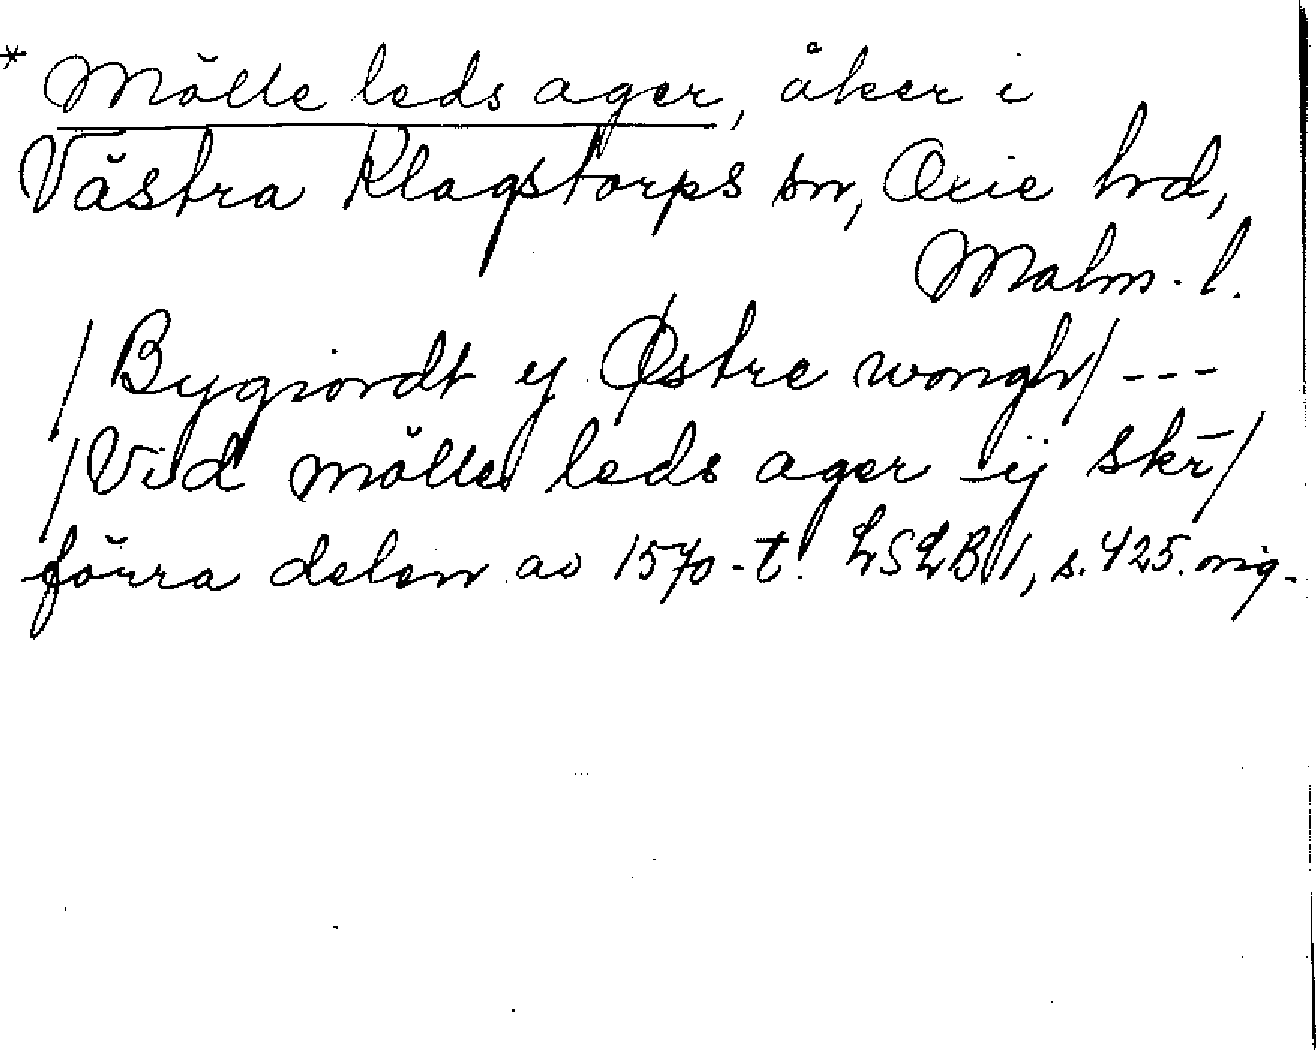 * Mölle leds ager, åker i
Västra Klagstorps sn, Oxie hd,
Malm. l.
/Bygiordt y Østre wongh/ ---
/Vid mölle leds ager ij skr̄/
förra delen av 1570-t. LSLB 1, s. 425. orig.